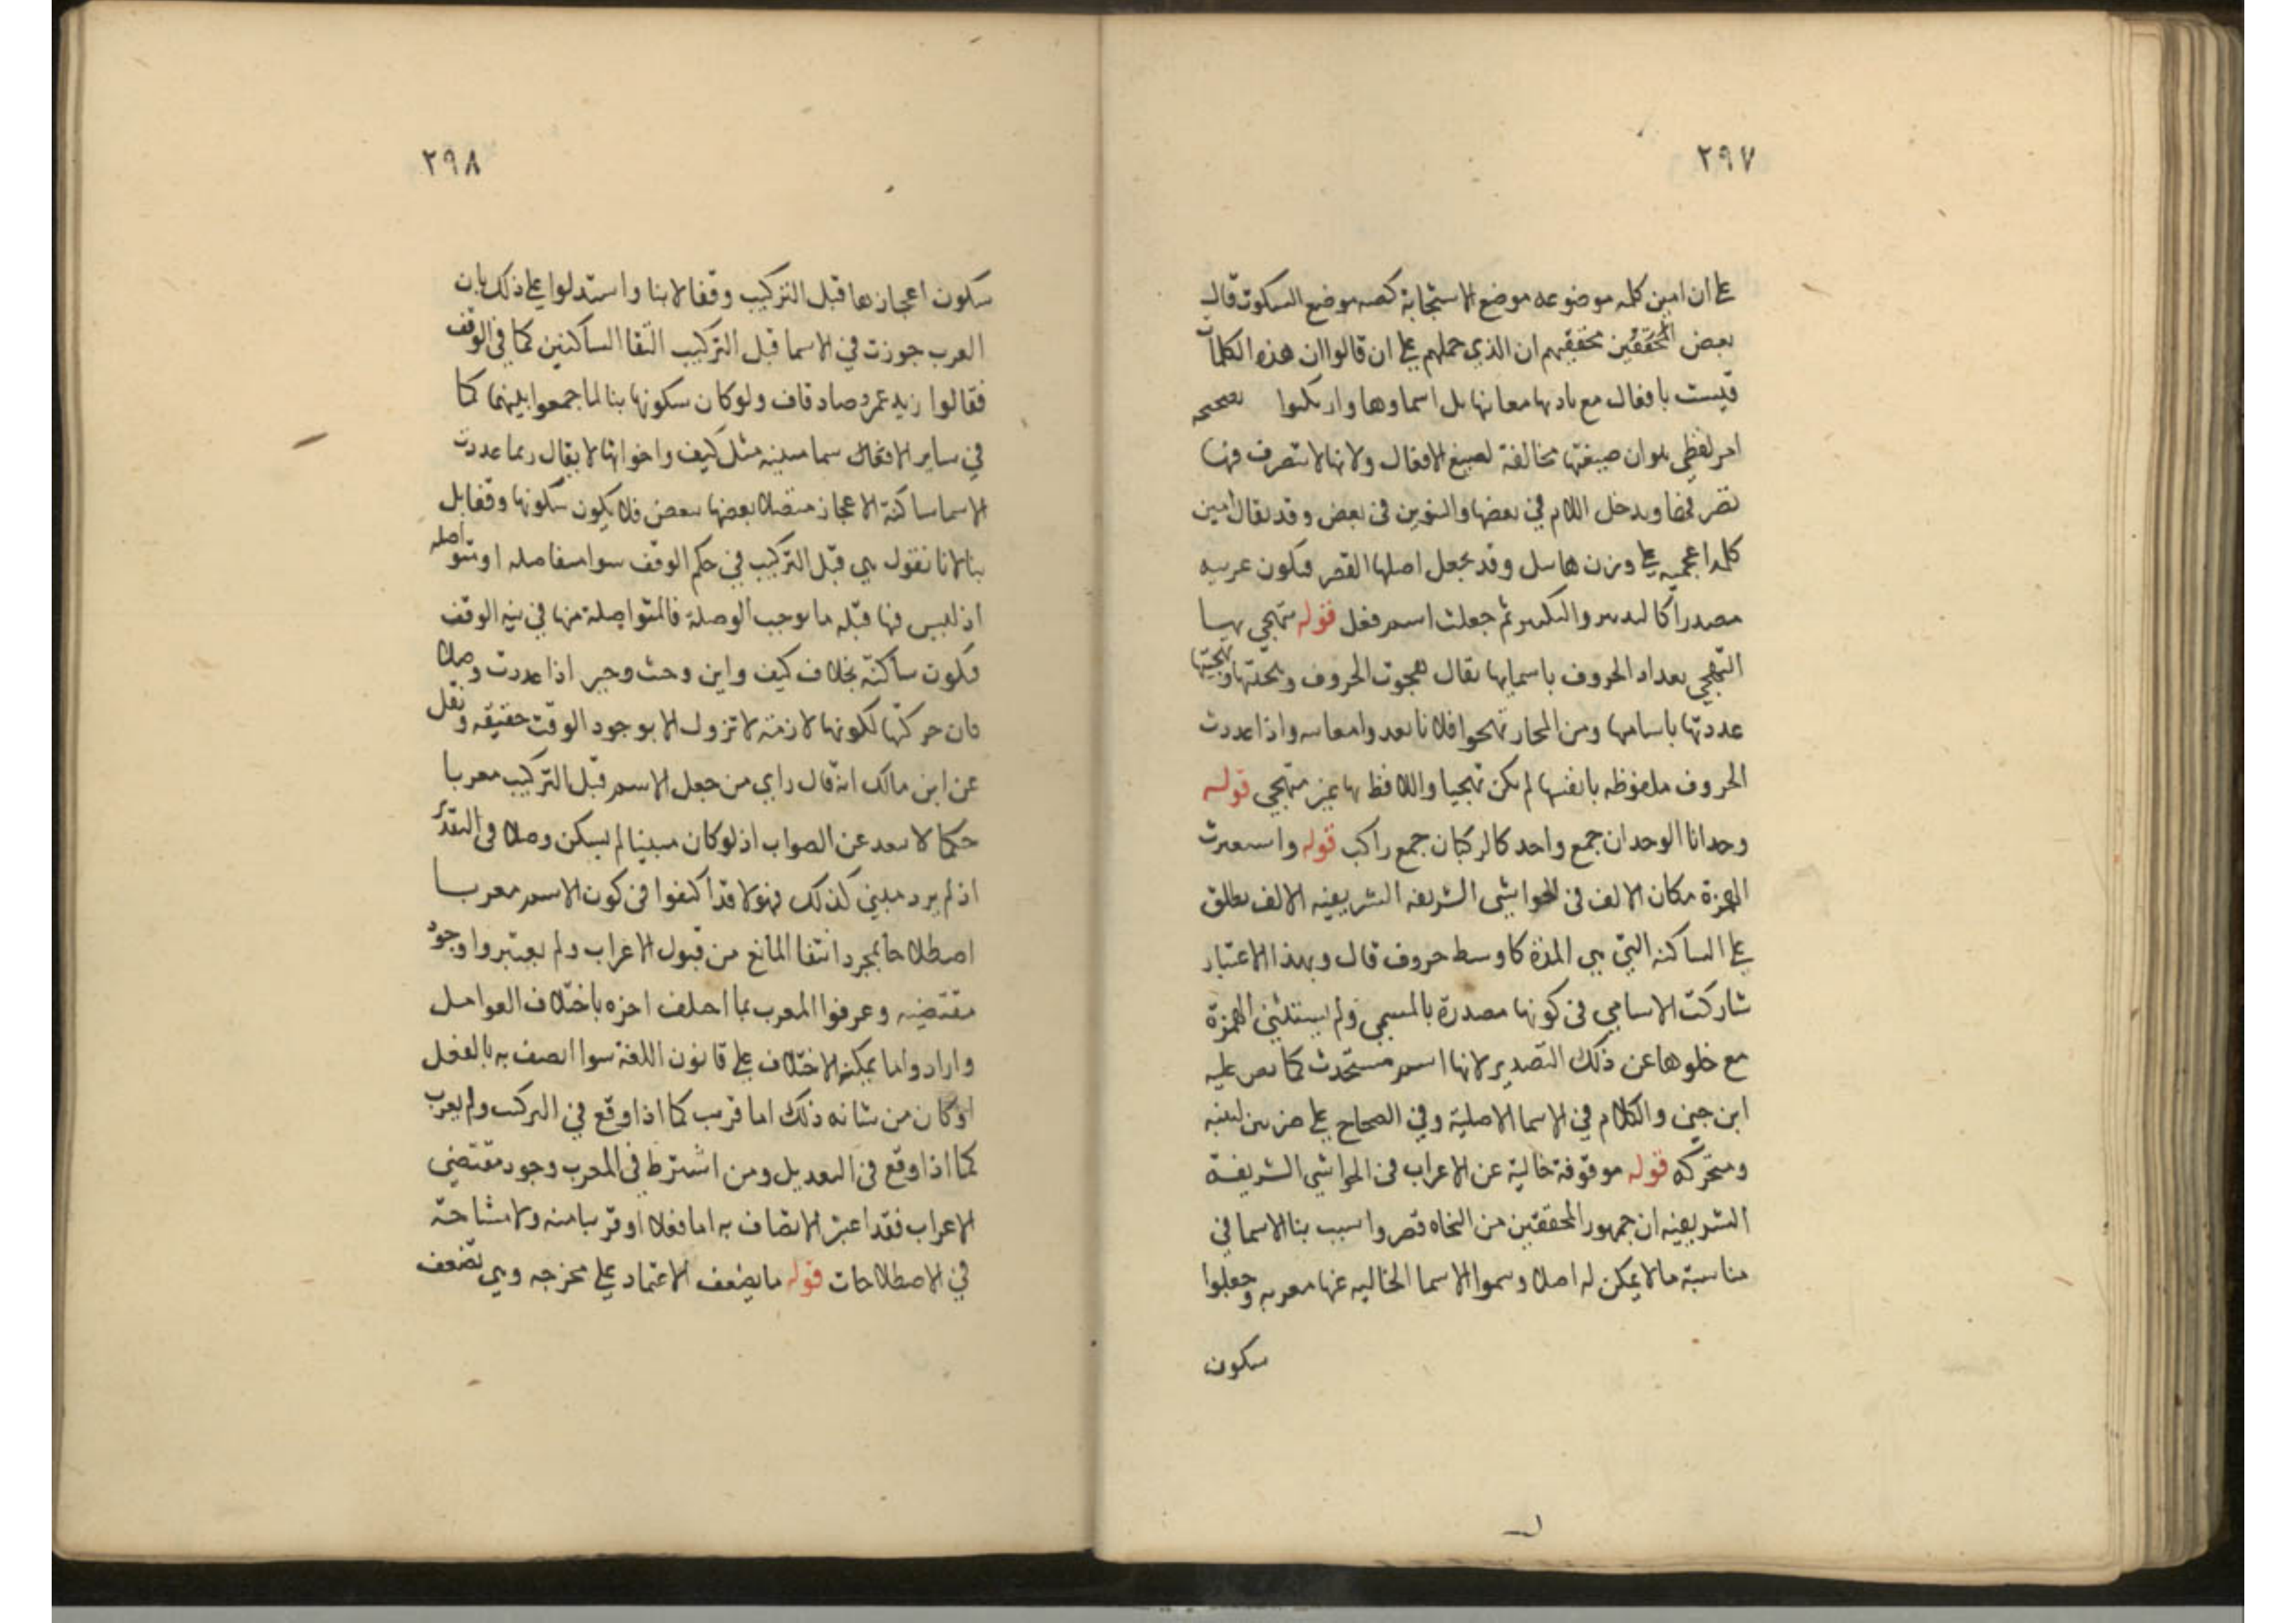 ٢٩٧
على ان امين كلمه موضوعه موضع الاستجابة كصه موضع السكوت قال
بعض المحققين تحقيقهم ان الذي حملهم على ان قالوا ان هذه الكلمات
ليست بافعال مع معانها بل اسماوها
امر لفظي صيغتها مخالفة لصيغ الافعال ولانها لا تتصرف
ويدخل اللام في بعضها والتنوين في بعض وقد يقال امين
كلمه اعجميه على وزن هابيل وقد يجعل اصلها القصر فيكون عربيه
مصدرا ثم جعلت اسم فعل قوله يتهجي بها
التهجي تعداد الحروف باسمايها يقال هجوت الحروف وتهجيتها
عددتها باساميها ومن المجاز فلانا واذا عددت
الحروف ملفوظه بانفسها لم يكن تهجيا واللافظ بها غير متهجي قوله
وحدانا الوحدان جمع واحد كالركبان جمع راكب قوله واستعيرت
الهمزة مكان الالف في الحواشي الشريفه الشريفيه الالف يطلق
على الساكنه التي هي المدة كاوسط حروف قال وبهذا الاعتبار
شاركت الاسامي في كونها مصدرة بالمسمي ولم يستثني الهمزة
مع خلوها عن ذلك التصدير لانها اسم مستحدث كما نص عليه
ابن جني والكلام في الاسما الاصلية وفي الصحاح على ضربين لينه
ومتحركه قوله موقوفة خالية عن الاعراب في الحواشي الشريفة
الشريفيه ان جمهور المحققين من النحاه قصروا سبب بنا الاسما في
مناسبة مالا يمكن له اصلا وسموا الاسما الخاليه عنها معربه وجعلوا
سكون
٢٩٨
سكون اعجازها قبل التركيب وقفا لا بنا واستدلوا على ذلك بان
العرب جوزت في الاسما قبل التركيب التقا الساكنين كما في الوقف
فقالوا زيد عمرو صاد قاف ولو كان سكونها بنا لما جمعوا بينهما كما
في ساير مبينه مثل كيف واخواتها لا يقال ربما عددت
الاسما ساكنة الاعجاز متصلا بعضها ببعض فلا يكون سكونها وقفا بل
بنا لانا نقول هي قبل التركيب في حكم الوقف سوا متفاصله او متواصله
اذ ليس فيها قبله ما يوجب الوصلة فالمتواصلة منها في نيه الوقف
فيكون ساكنة بخلاف كيف واين وحيث وجير اذا عددت وصلا
فان حركتها لكونها لازمة لا تزول الا بوجود الوقف حقيقه ونقل
عن ابن مالك انه قال راي من جعل الاسم قبل التركيب معربا
حكما لا يبعد عن الصواب اذ لو كان مبنيا لم يسكن وصلا في
اذ لم يرد مبني كذلك فهولا قد اكتفوا في كون الاسم معربا
اصطلاحا بمجرد انتفا المانع من قبول الاعراب ولم يعتبروا وجود
مقتضيه وعرفوا المعرب بما اختلف اخره باختلاف العوامل
وارادوا ما يمكنه الاختلاف على قانون اللغة سوا اتصف به بالفعل
او كان من شانه ذلك اما قريب كما اذا وقع في التركيب ولم يعرب
كما اذا وقع في التعديل ومن اشترط في المعرب وجود مقتضي
الاعراب فقد اعتبر الاتصاف به اما فعلا او قريبا منه ولا مشاحة
في الاصطلاحات قوله ما يضعف الاعتماد على مخرجه وهي تضعف